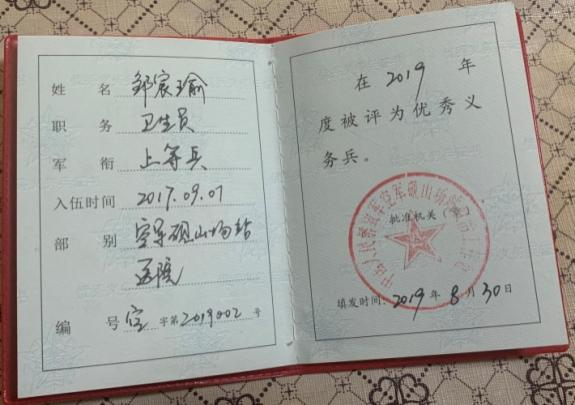 姓名 邹宸瑜
职务 卫生员
军衔 上等兵
入伍时间 2017.09.07
部别 空军砚山场站
医院
编号 空 字第2019002号
在2019年
度被评为优秀义
务兵。
批准机关（章）
填发时间：2019年8月30日